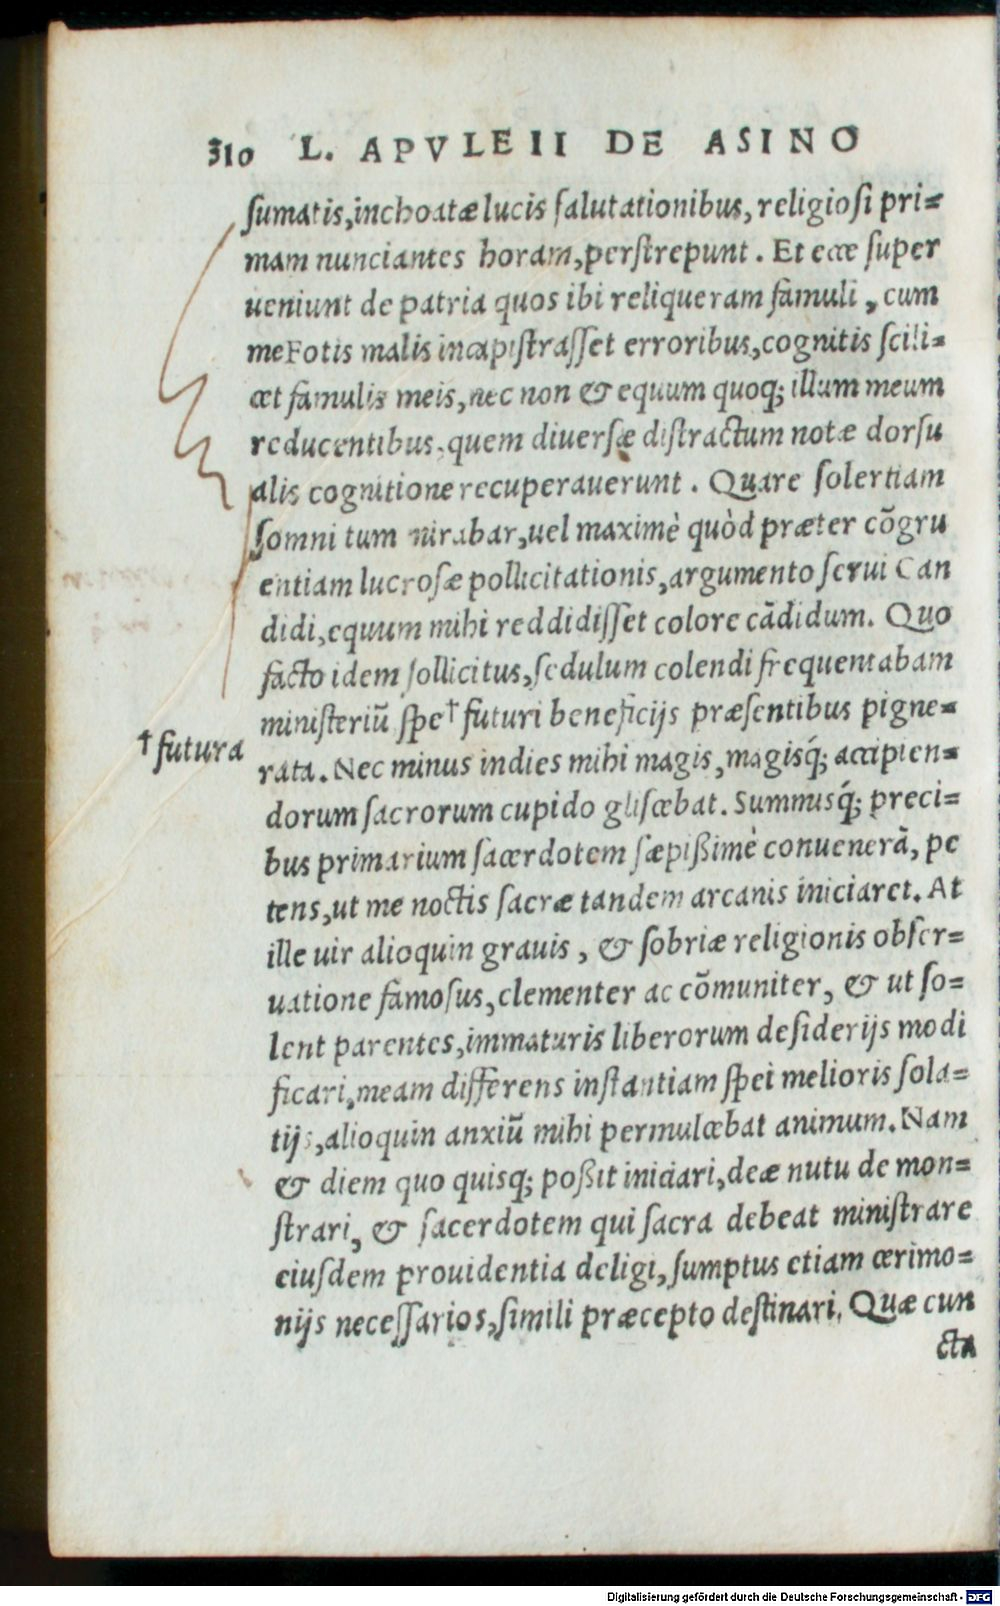 310 L. APVLEII DE ASINO
sumatis, inchoatæ lucis salutationibus, religiosi pri=
mam nunciantes horam, perstrepunt. Et ecce super
ueniunt de patria quos ibi reliqueram famuli, cum
me Fotis malis incapistrasset erroribus, cognitis scili=
cet famulis meis, nec non & equum quoq; illum meum
reducentibus, quem diuersæ distractum notæ dorsu
alis cognitione recuperauerunt. Quare solertiam
somni tum mirabar, uel maximè quòd præter cõgru
entiam lucrosæ pollicitationis, argumento serui Can
didi, equum mihi reddidisset colore cãdidum. Quo
facto idem sollicitus, sedulum colendi frequentabam
ministeriũ spe † futuri beneficijs præsentibus pigne=
† futura
rata. Nec minus indies mihi magis, magisq́; accipien=
dorum sacrorum cupido gliscebat. Summusq́; preci=
bus primarium sacerdotem sæpißimè conuenerã, pe
tens, ut me noctis sacræ tandem arcanis iniciaret. At
ille uir alioquin grauis, & sobriæ religionis obser=
uatione famosus, clementer ac cõmuniter, & ut so=
lent parentes, immaturis liberorum desiderijs modi
ficari, meam differens instantiam spei melioris sola=
tijs, alioquin anxiũ mihi permulcebat animum. Nam
& diem quo quisq; poßit iniciari, deæ nutu de mon=
strari, & sacerdotem qui sacra debeat ministrare
eiusdem prouidentia deligi, sumptus etiam cerimo=
nijs necessarios, simili præcepto destinari. Quæ cun
cta
Digitalisierung gefördert durch die Deutsche Forschungsgemeinschaft - DFG